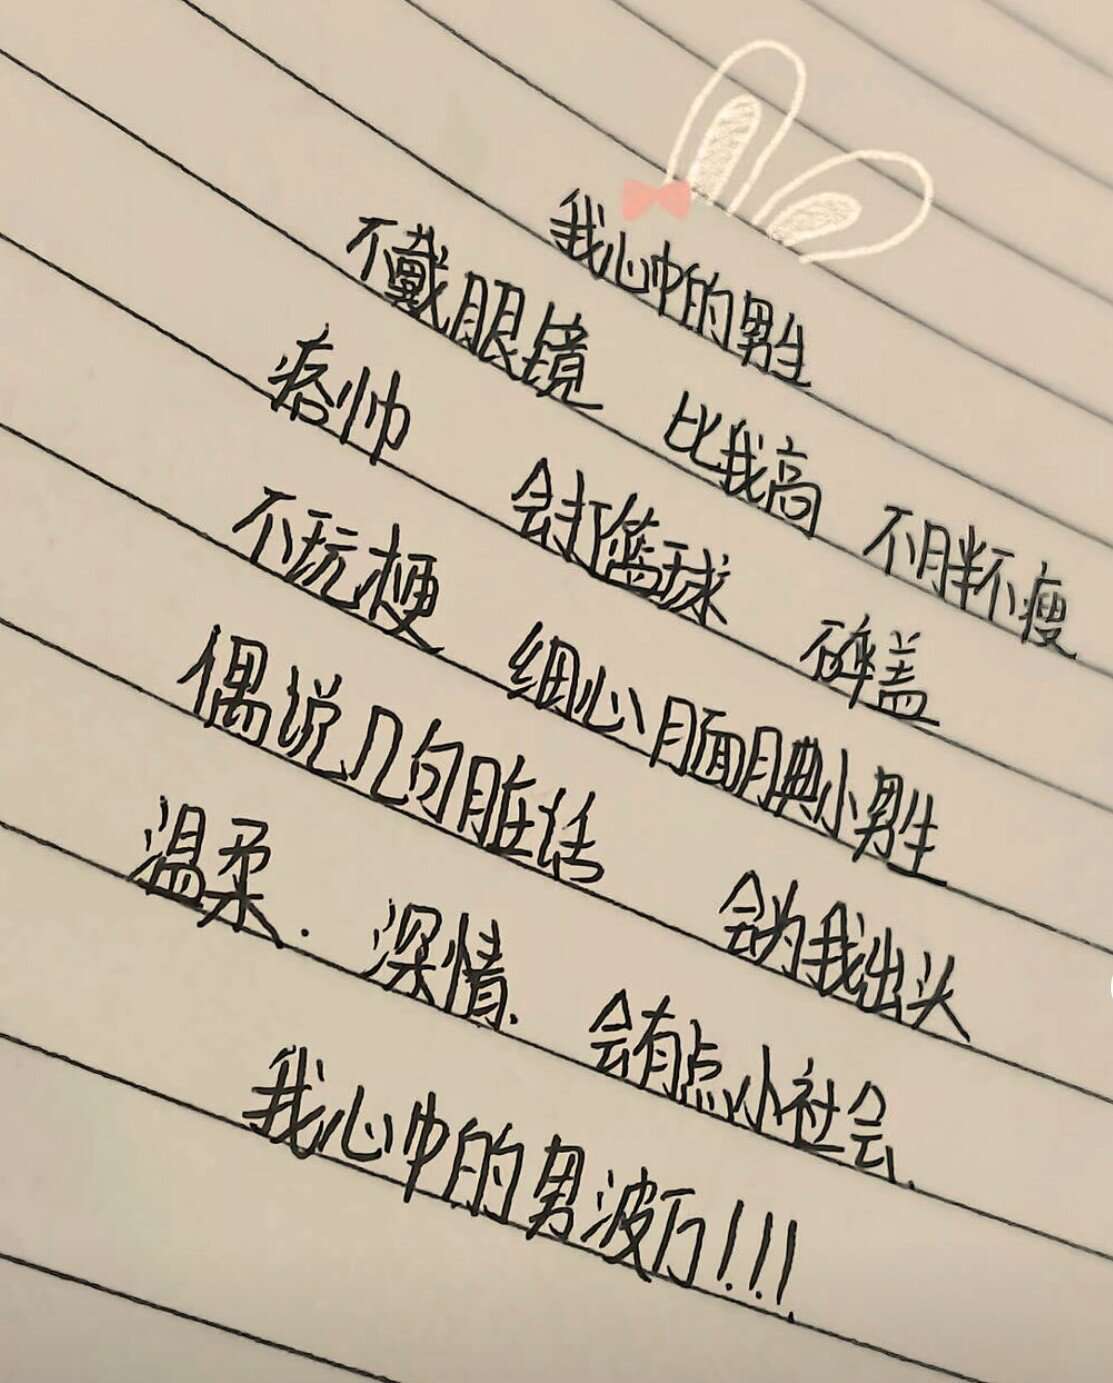 我心中的男生
不戴眼镜 比我高 不胖不瘦
痞帅 会打篮球 碎盖
不玩梗 细心腼腆小男生
偶说几句脏话 会为我出头
温柔. 深情. 会有点小社会.
我心中的男波万!!!